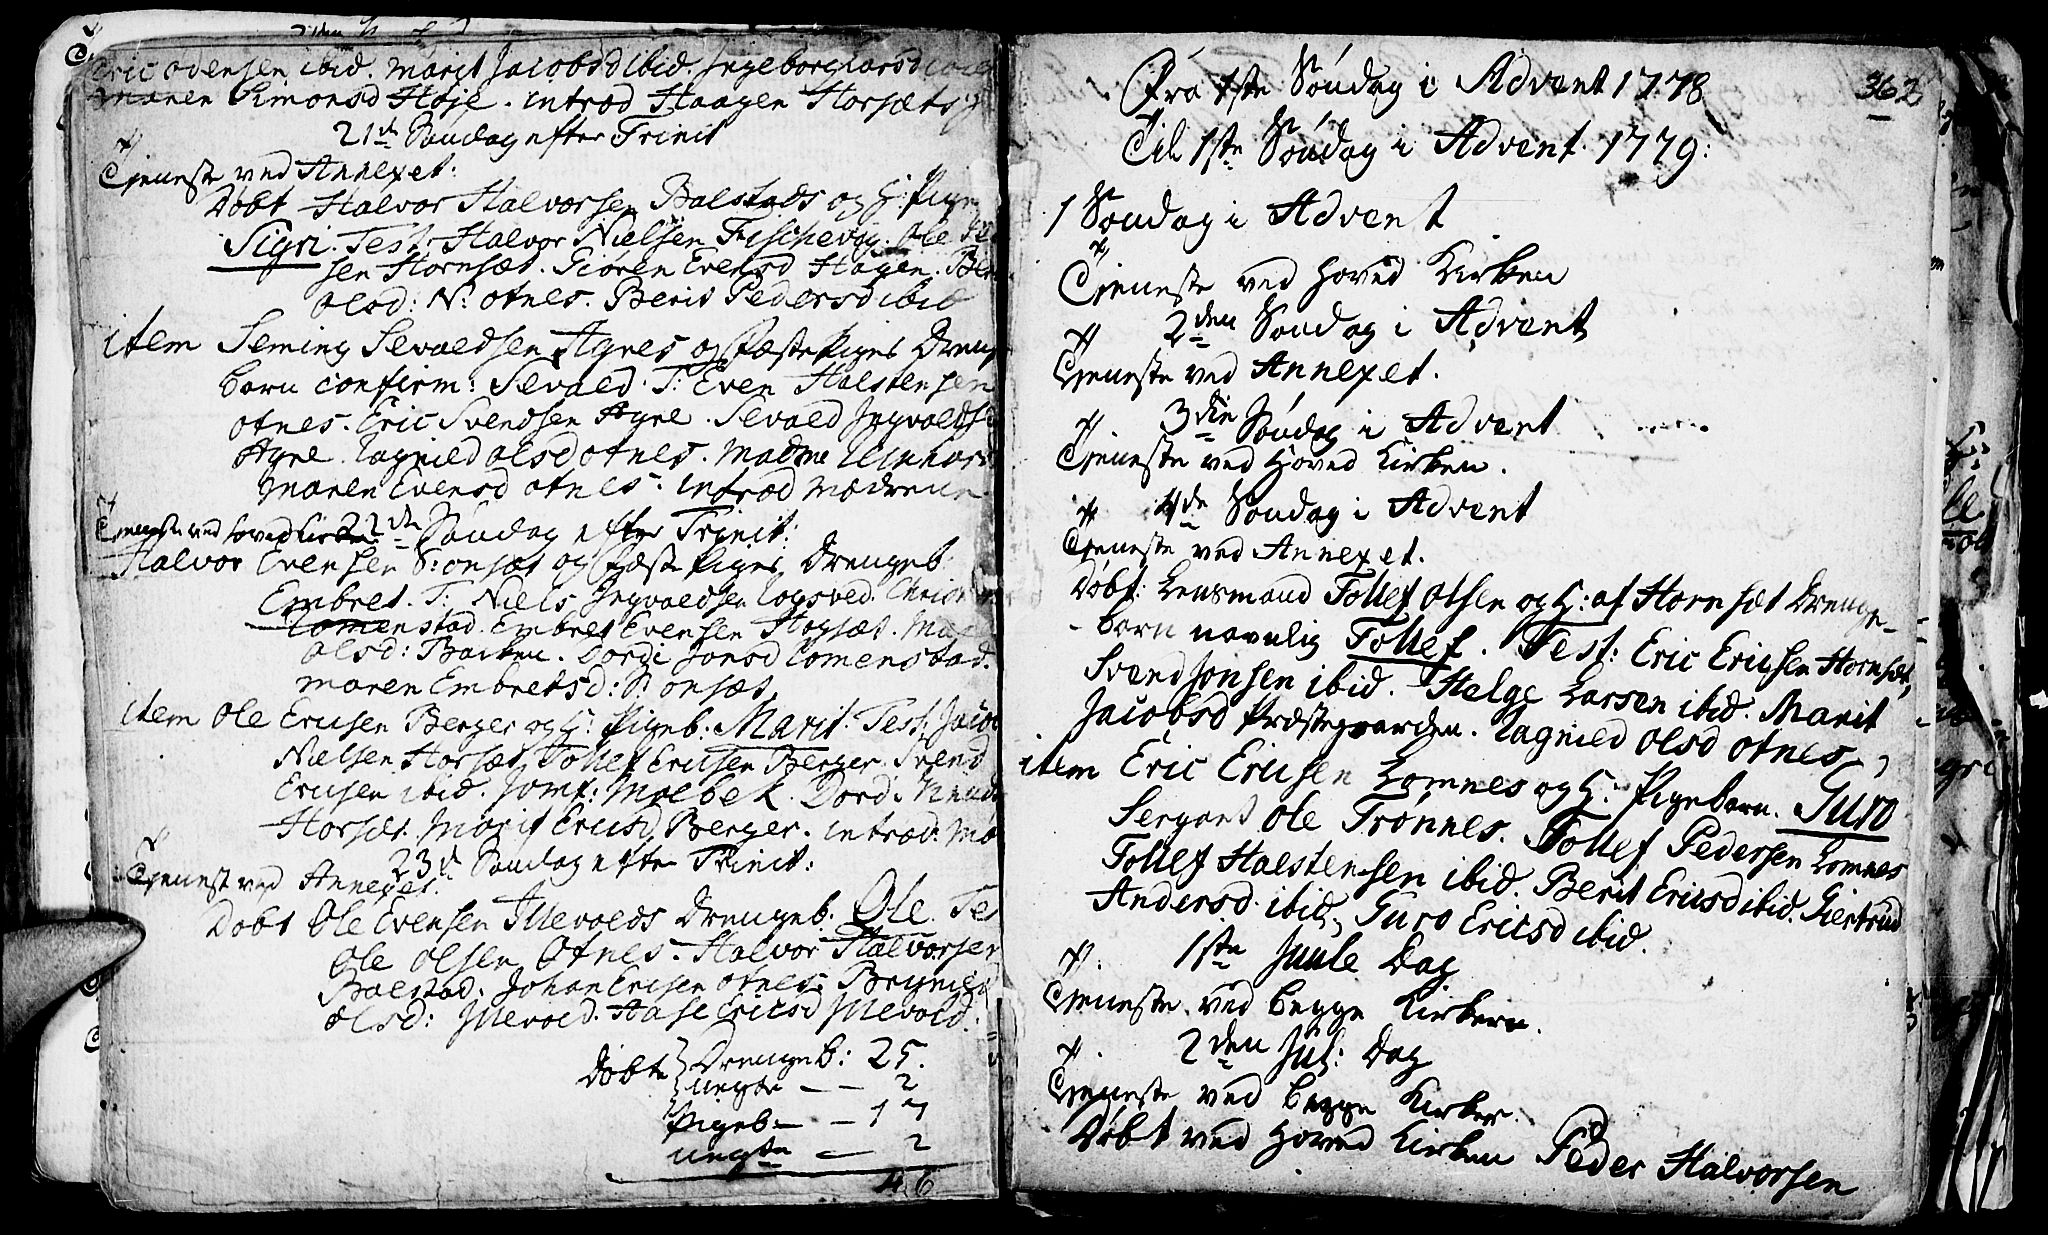 Eric Odensen ibid. Marit Jacobsd ibid. Ingeborg Larsd
Maren Simonsd Høje. introd Haagen Horsæts
21de Søndag efter Trinit
Tieneste ved Annexet:
Døbt Halvor Halvorsen Balstads og H: Pige
Sigri. Test: Halvor Nielsen Fischevog. Ole
sen Hornsæt. Giøren Evensd Hagen. Ber
Olsd: N: Otnes. Berit Pedersd ibid
item Seming Sevaldsen Agnes og Fæste Piges Dreng
barn confirm: Sevald. T: Even Halstensen
Otnes. Eric Svendsen Agne. Sevald Ingvaldse
Agne. Ragnild Olsd Otnes. Madme
Maren Evensd Otnes. introd Mødrene
Tieneste ved Hoved Kirken 22de Søndag efter Trinit:
Halvor Evensen S: onsæt og Fæste Piges Drengeb
Embret. T: Niels Ingvaldsen Logsved.
Lomenstad. Embret Evensen Hogsæt.
Olsd: Backen. Dordi Jonsd Lomenstad.
Maren Embretsd: S: onsæt
item Ole Ericsen Berger og H: Pigeb: Marit. Test: Jacob
Nielsen Horsæt, Tollef Ericsen Berger. Svend
Ericsen ibid. Jomf: Moebek. Dordi
Horsæt. Marit Ericsd Berger. introd: Mo
23de Søndag efter Trinit:
Tienest ved Annexet.
Døbt Ole Evensen Illevolds Drengeb. Ole. Tes
Ole Olsen Otnes. Halvor Halvorsen
Balstad. Johan Ericsen Otnes. Brynild
Olsd: Illevold. Aase Ericsd Illevold.
Døbte Drengeb: 25.
uægte — — 2
Pigeb — — 17
uægte — 2
46
362
Fra 1ste Søndag i Advent 1778
Til 1ste Søndag i Advent 1779:
1 Søndag i Advent
Tieneste ved Hoved Kirken
2den Søndag i Advent
Tieneste ved Annexet.
3die Søndag i Advent
Tieneste ved Hoved Kirken.
4de Søndag i Advent
Tieneste ved Annexet.
Døbt: Lensmand Tollef Olsen og H: af Hornsæt Drenge-
barn navnlig Tollef. Test: Eric Ericsen Hornsæt,
Svend Jonsen ibid. Helge Larsen ibid. Marit
Jacobsd Præstegaarden. Ragnild Olsd Otnes
item Eric Ericsen Lomnes og H: Pigebarn. Guro
Sergant Ole Trønnes. Tollef Pedersen Lomnes
Tollef Halstensen ibid. Berit Ericsd ibid. Giertrud
Andersd ibid, Guro Ericsd ibid.
1ste Juule Dag
Tieneste ved begge Kirkerne.
2den Jul: Dag
Tieneste ved begge Kirker.
Døbt ved Hoved Kirken Peder Halvorsen